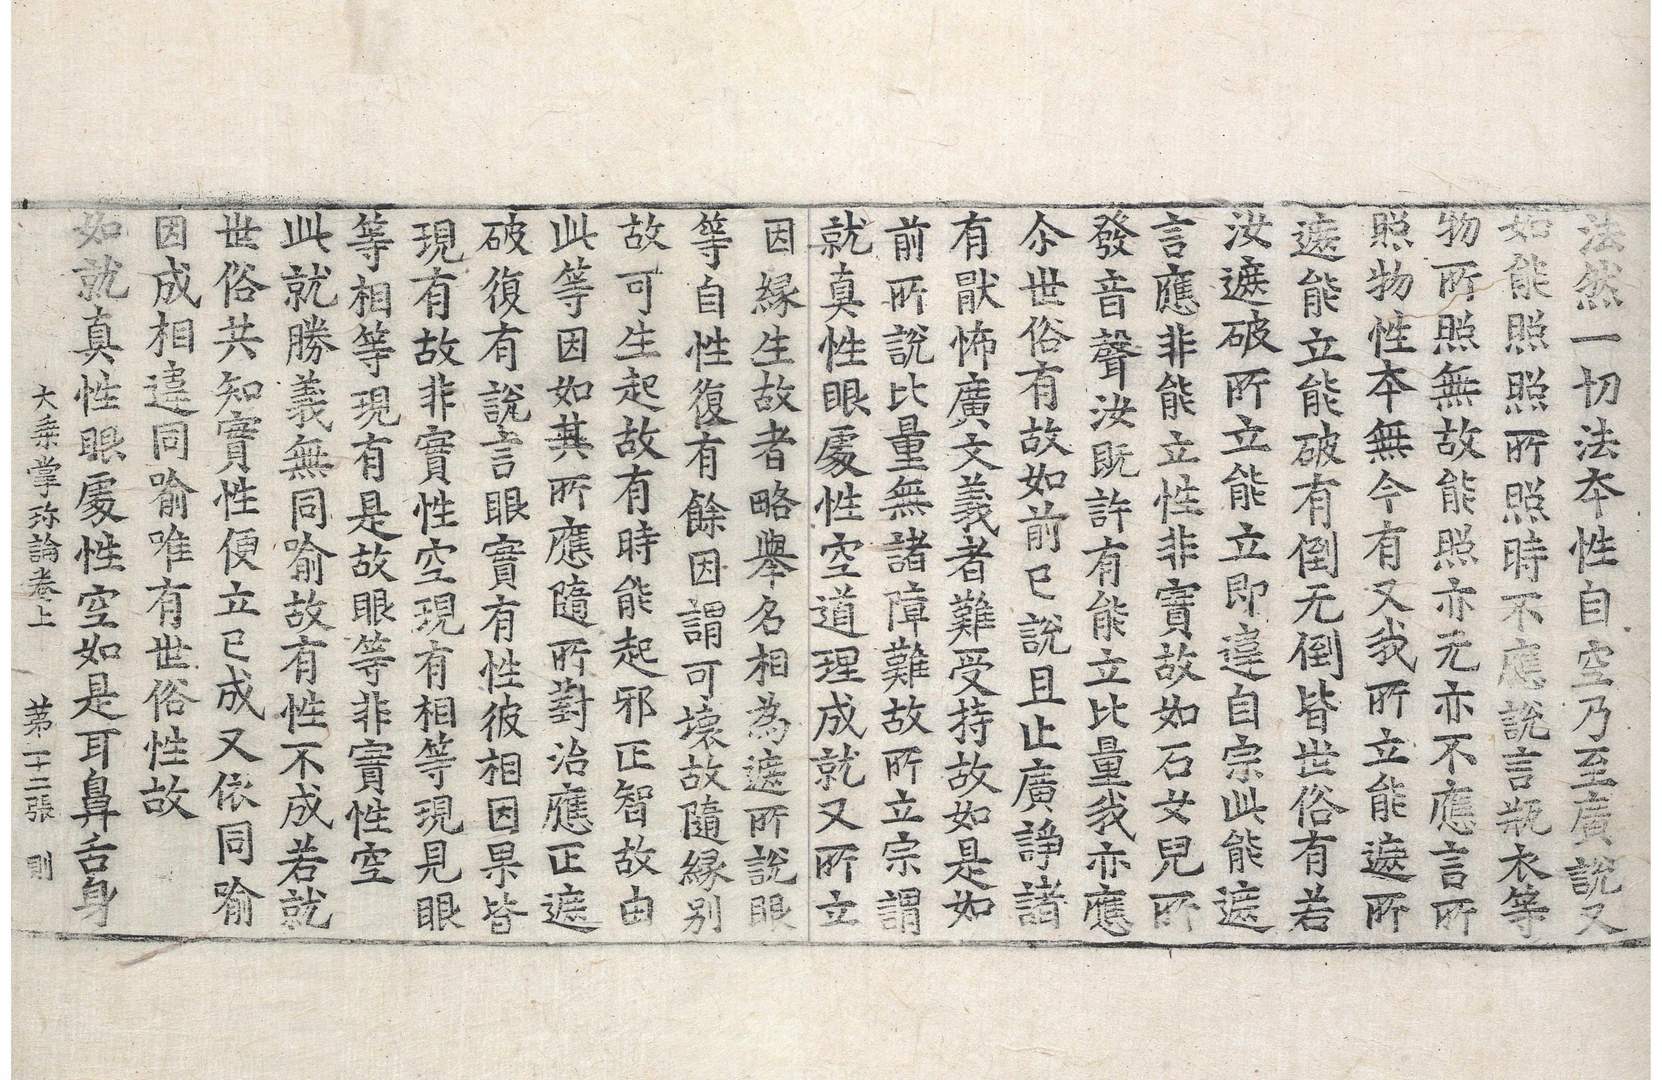 法然一切法本性自空乃至廣說又
如能照照所照時不應說言瓶衣等
物所照無故能照亦无亦不應言所
照物性本無今有又我所立能遮所
遮能立能破有倒无倒皆世俗有若
汝遮破所立能立即違自宗此能遮
言應非能立性非實故如石女兒所
發音聲汝既許有能立比量我亦應
尒世俗有故如前已說且止廣諍諸
有猒怖廣文義者難受持故如是如
前所說比量無諸障難故所立宗謂
就真性眼處性空道理成就又所立
因縁生故者略舉名相為遮所說眼
等自性復有餘因謂可壞故隨縁別
故可生起故有時能起邪正智故由
此等因如其所應隨所對治應正遮
破復有說言眼實有性彼相因果皆
現有故非實性空現有相等現見眼
等相等現有是故眼等非實性空
此就勝義無同喻故有性不成若就
世俗共知實性便立已成又依同喻
因成相違同喻唯有世俗性故
如就真性眼處性空如是耳鼻舌身
大乗掌珎論卷上　第二十二張　則